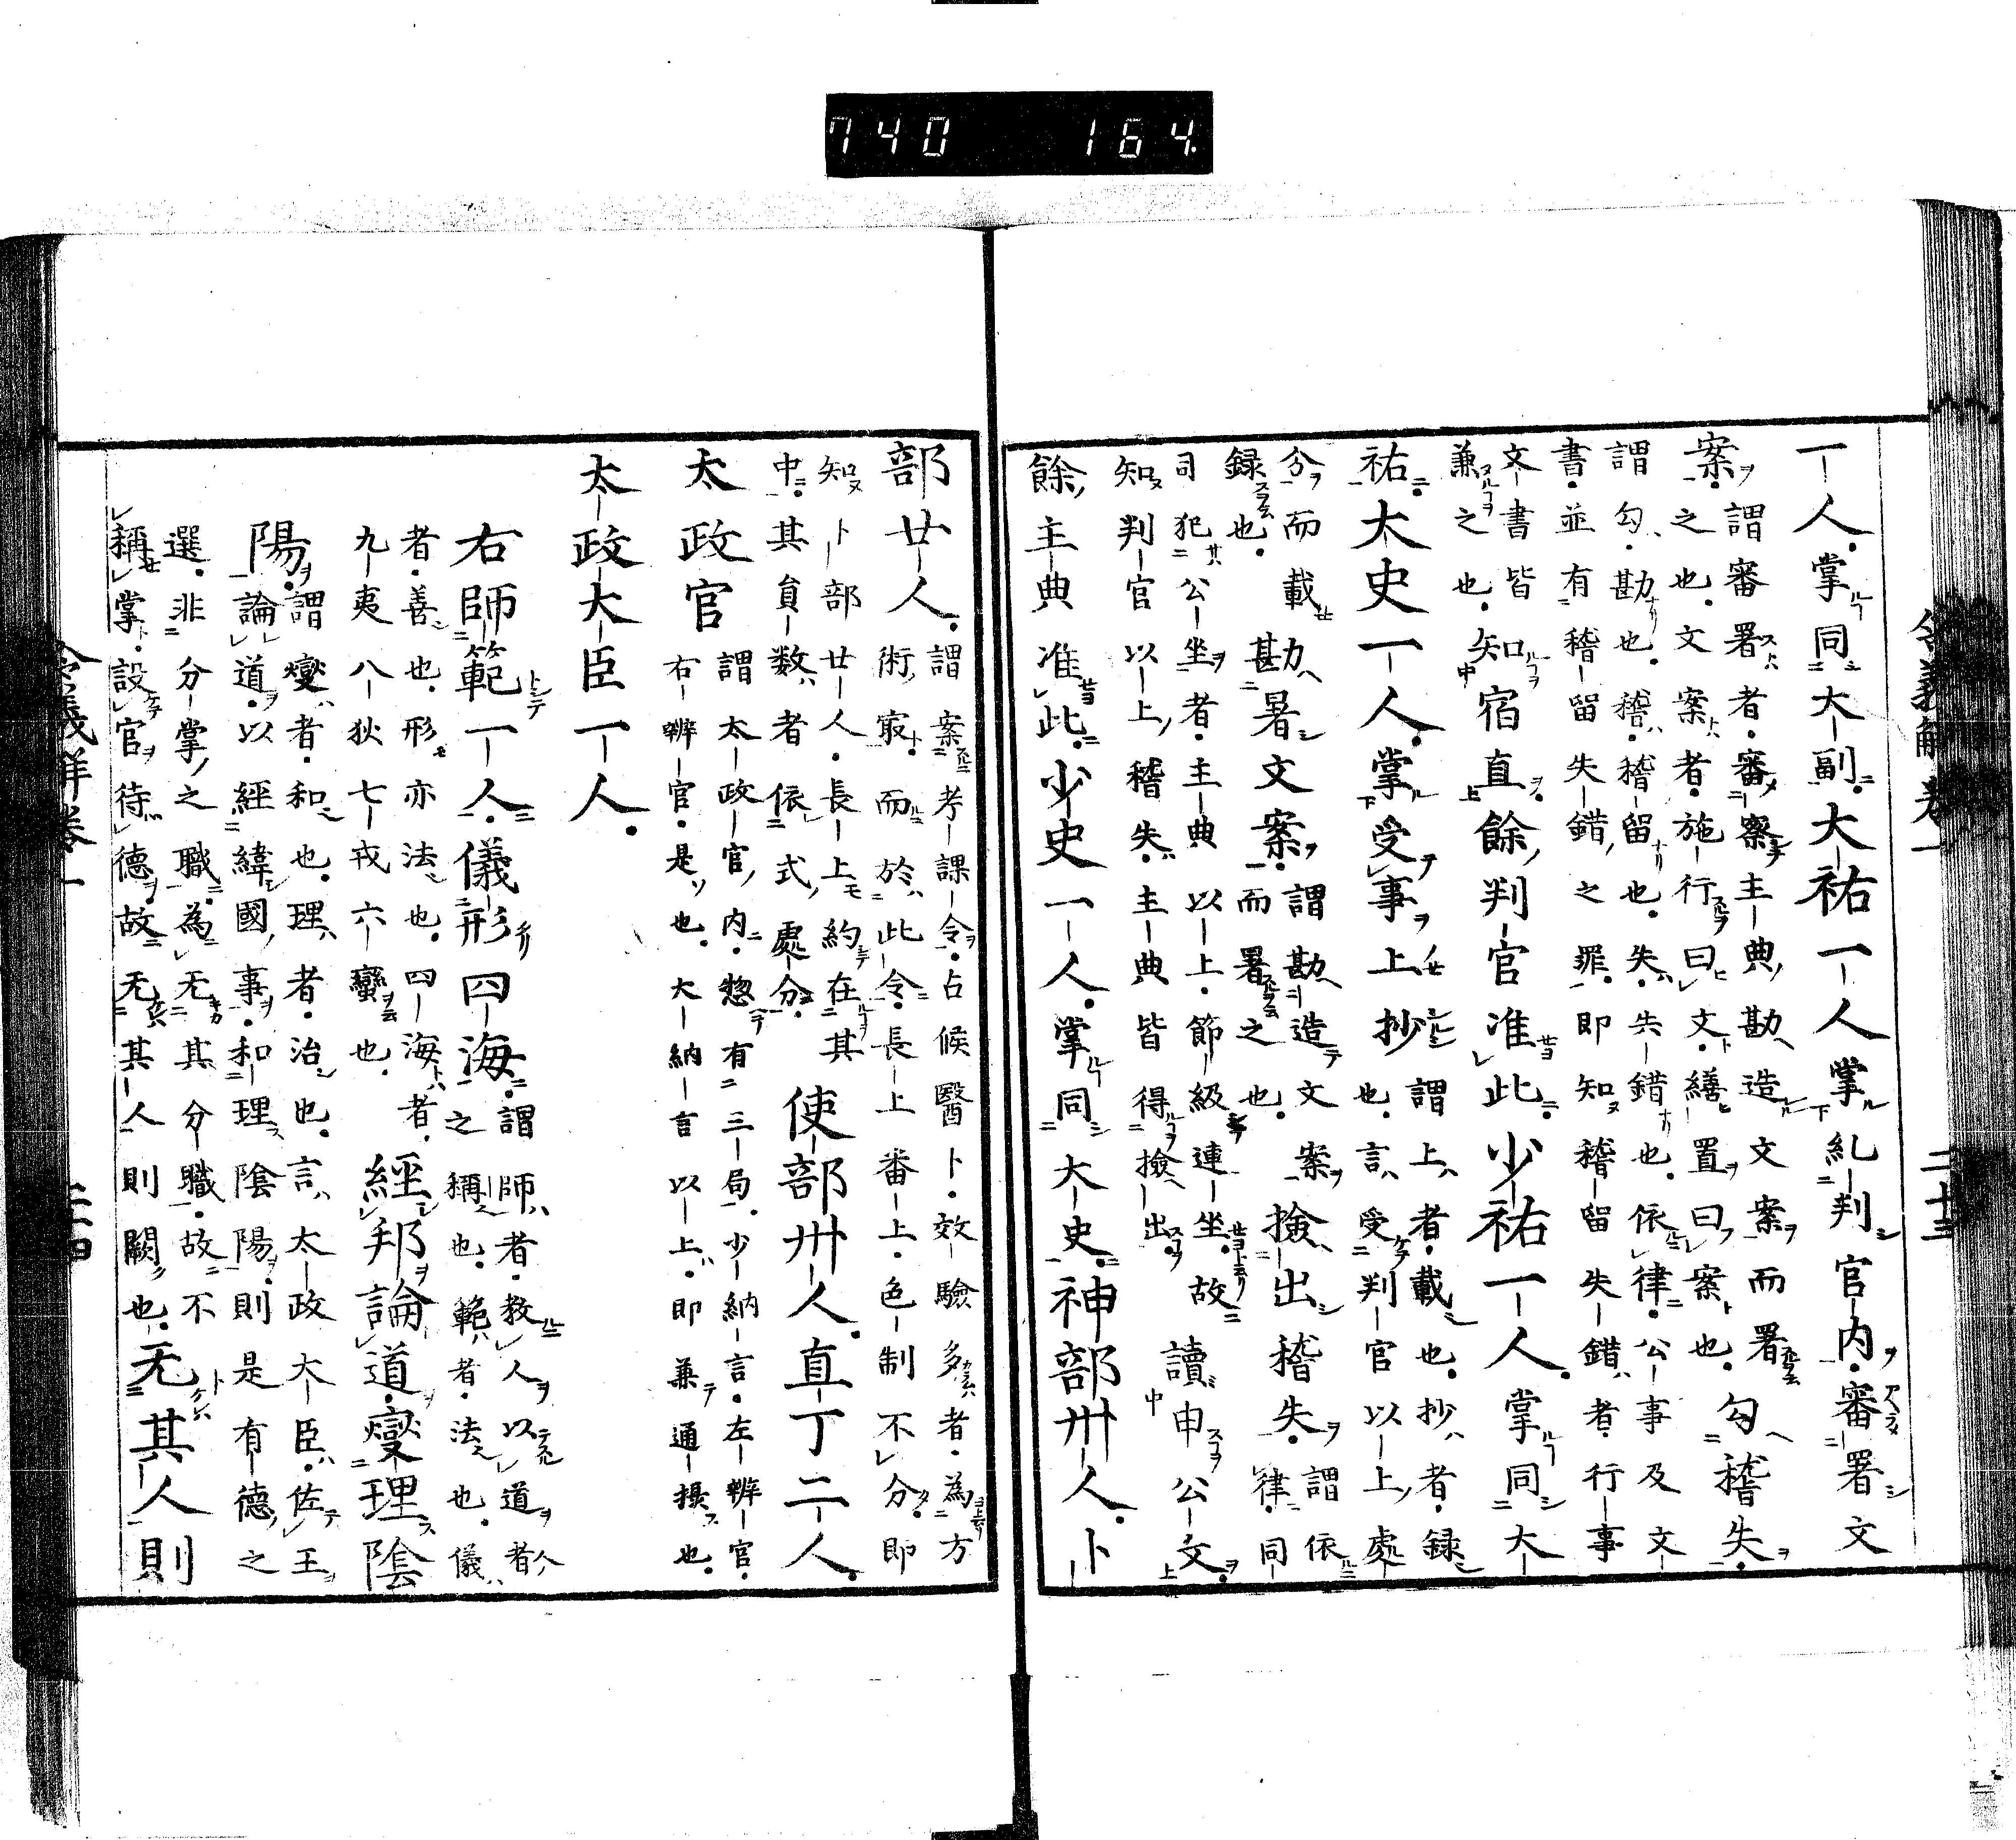 740 164
一人。掌同大副。大祐一人。掌糺判官内。審署文
案。謂審署者。審察主典勘造文案而署
之也。文案者。施行曰文。繕置曰案也。勾稽失。
謂勾。勘也。稽。稽留也。失。失錯也。依律。公事及文
書。並有稽留失錯之罪。即知稽留失錯者。行事
文書皆
兼之也。知宿直。餘判官准此。少祐一人。掌同大
祐。大史一人。掌受事上抄。謂上者。載也。抄者。録
也。言受判官以上處
分。而載
録也。勘署文案。謂勘造文案
而署之也。檢出稽失。謂依
律。同
司犯公坐者。主典以上。節級連坐。故
知判官以上稽失。主典皆得檢出。讀申公文。
餘主典准此。少史一人。掌同大史。神部卅人。卜
部廿人。謂案考課令。占候醫卜。效驗多者。為方
術最。而於此令。長上番上。色制不分。即
知卜部廿人。長上約在其
中。其員数者依式處分。使部卅人。直丁二人。
太政官謂太政官内。惣有三局。少納言。左辨官。
右辨官。是也。大納言以上。即兼通攝也。
太政大臣一人。
右師範一人。儀形四海。謂師者。教人以道者
之稱也。範者。法也。儀
者。善也。形亦法也。四海者。
九夷八狄七戎六蠻也。經邦論道。燮理陰
陽。謂燮者。和也。理者。治也。言太政大臣。佐王
論道。以經緯國事。和理陰陽。則是有德之
選。非分掌之職。為无其分職。故不
稱掌。設官待德。故无其人則闕也。无其人則